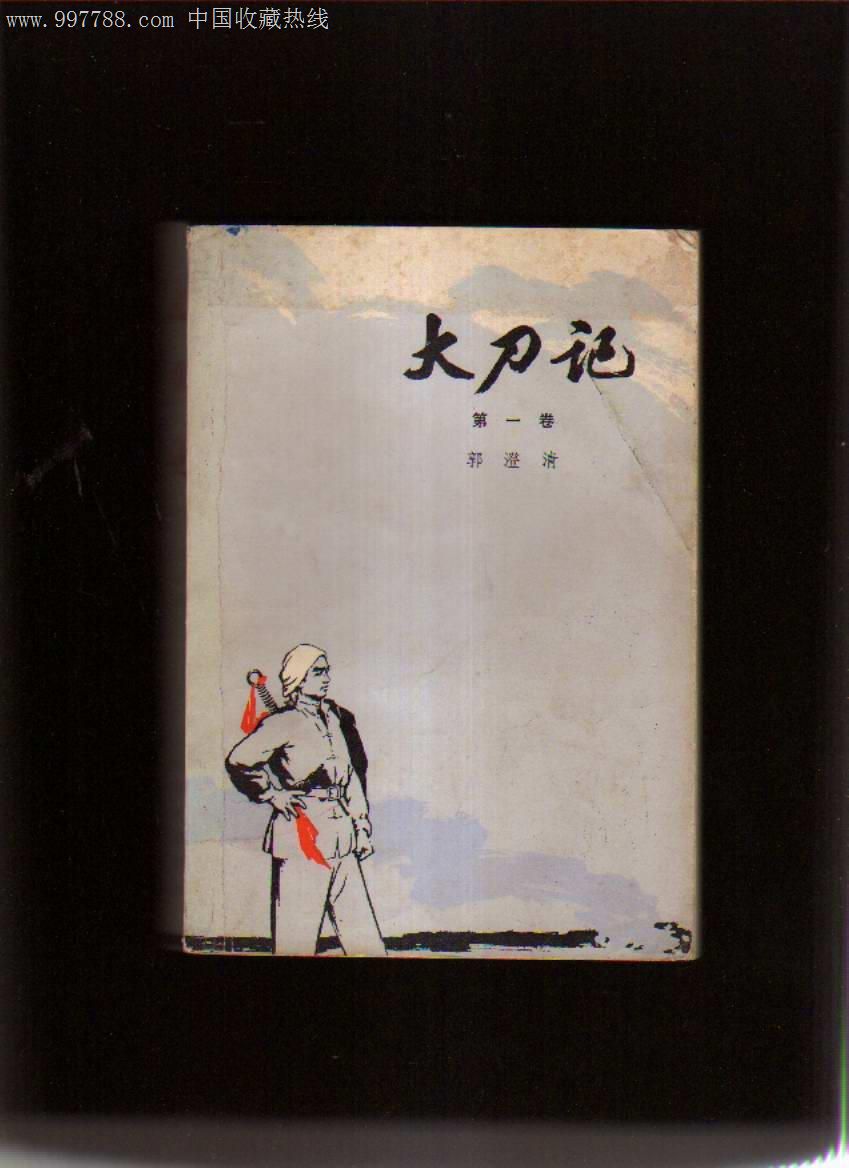 www.997788.com 中国收藏热线
大刀记
第一卷
郭澄清